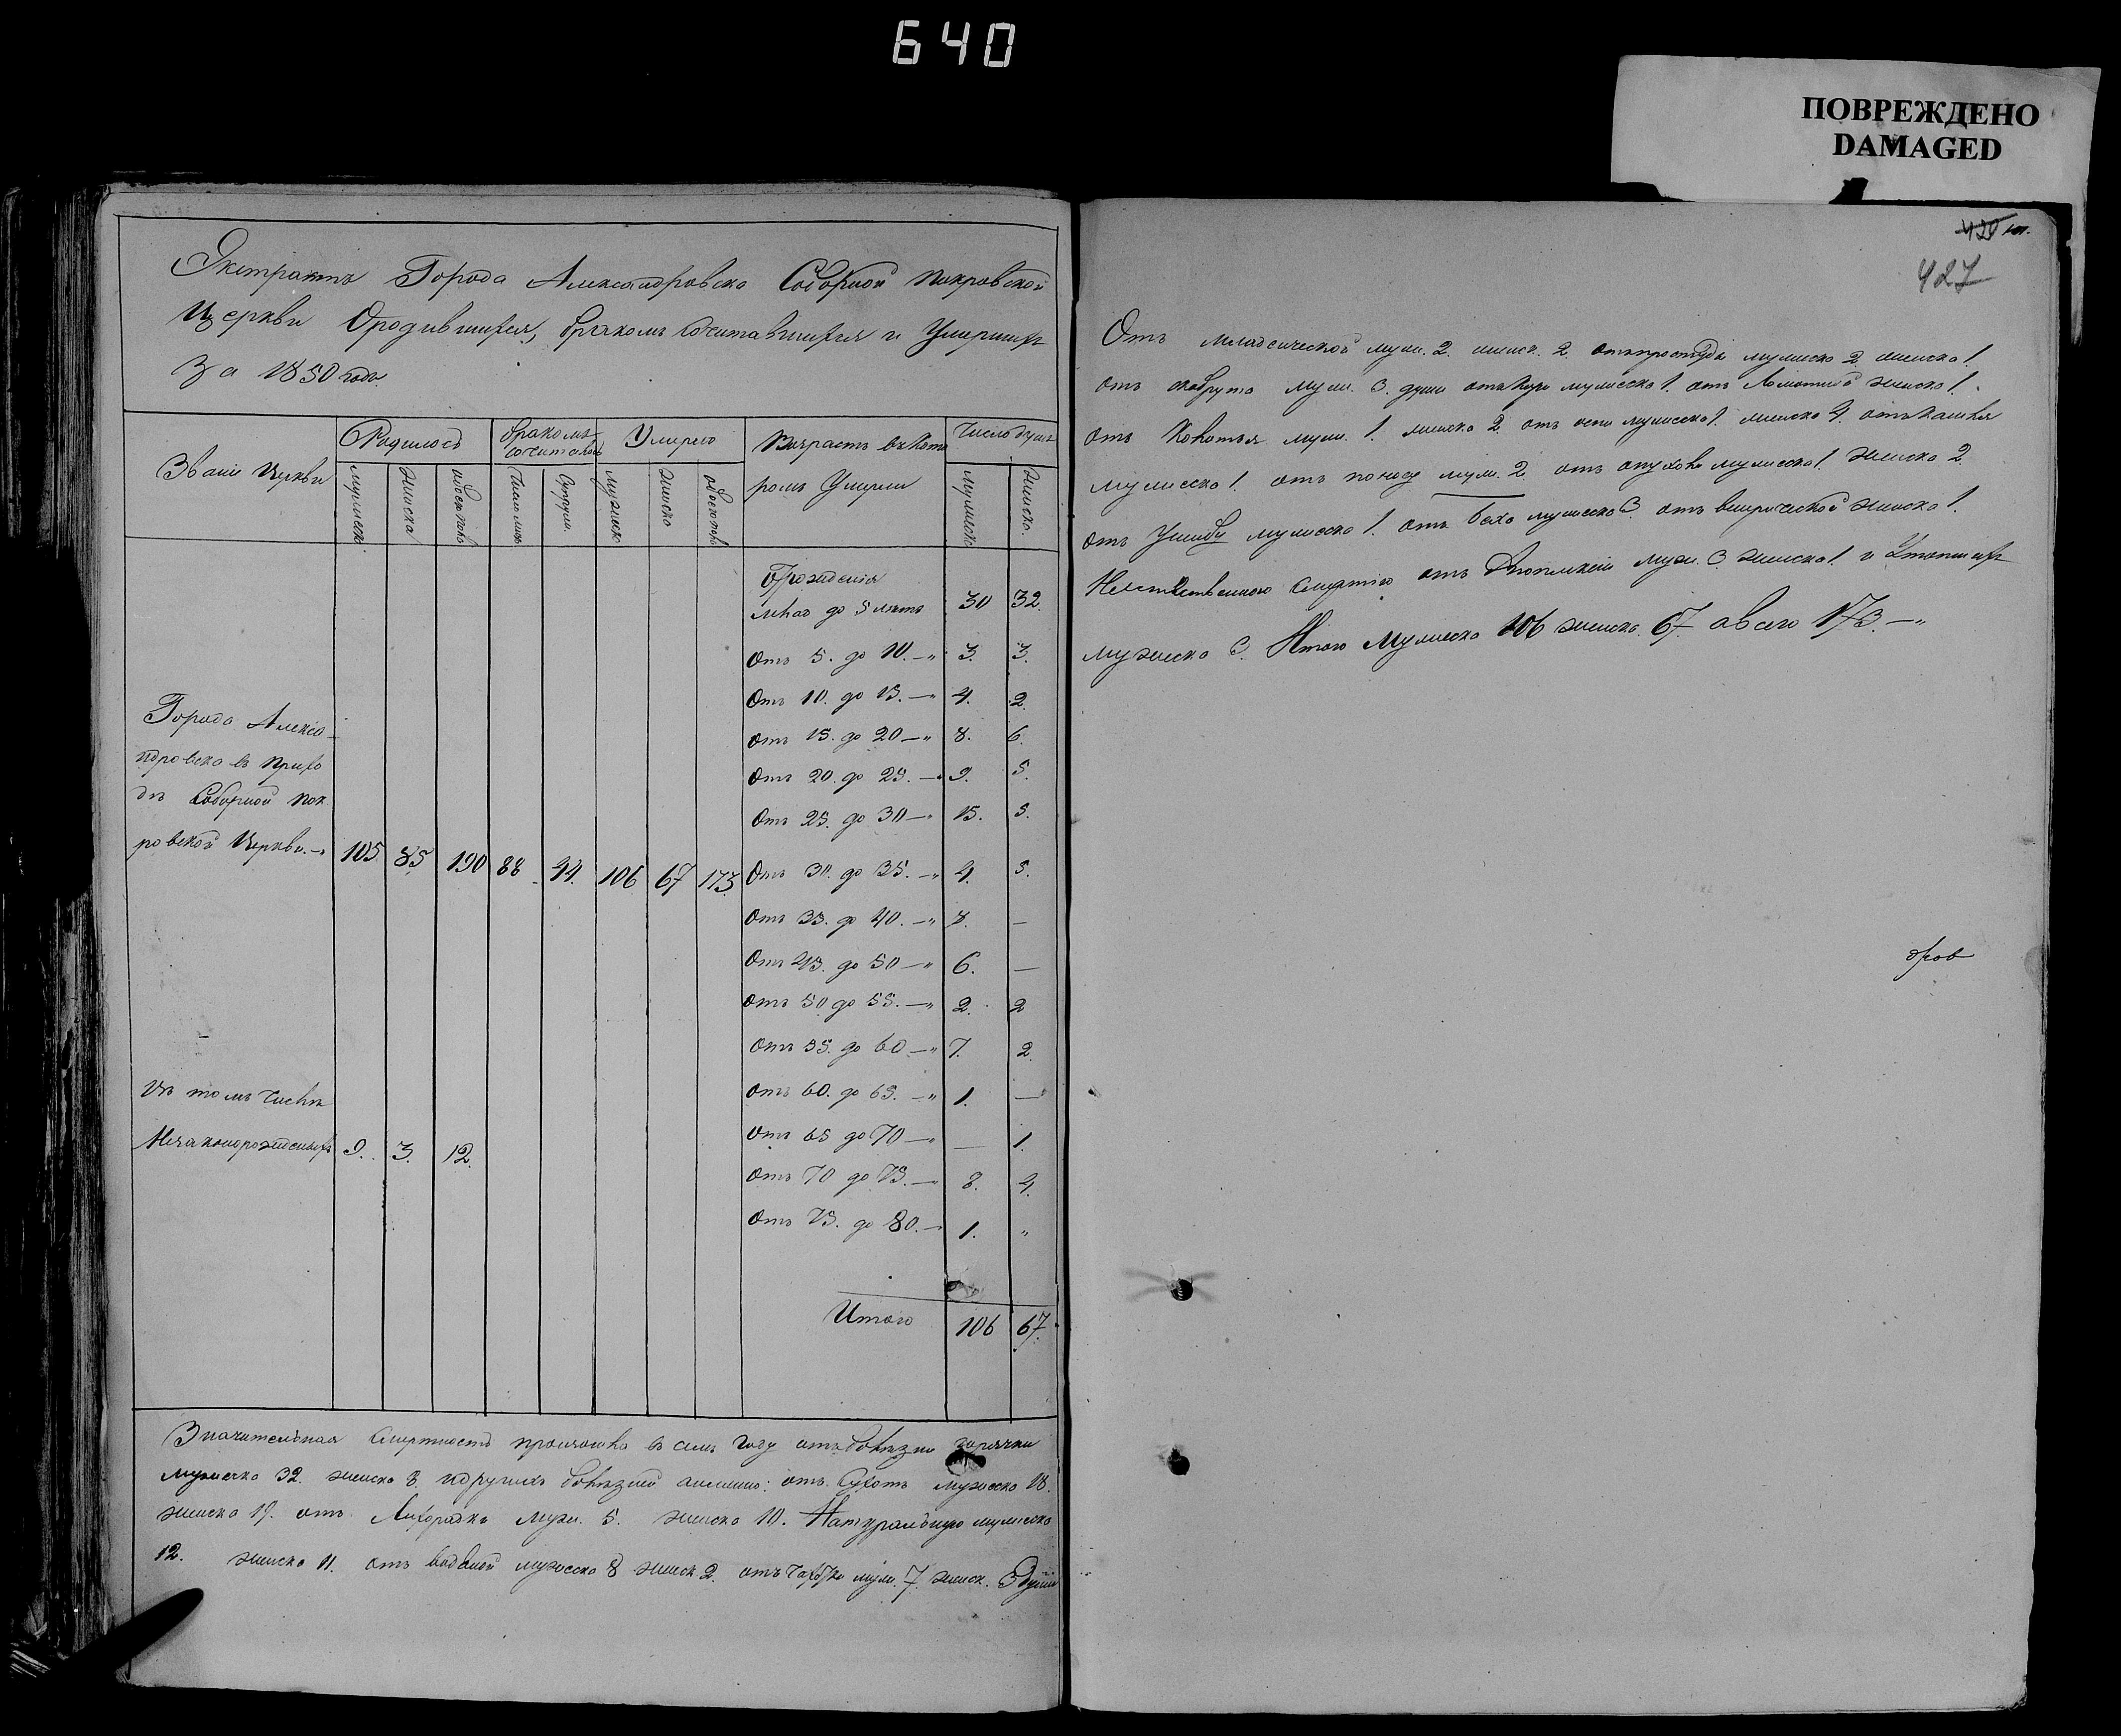 640
ПОВРЕЖДЕНО
DAMAGED
Экстрактъ Города Александровска Соборной Покровской
Церкви Ородившихся, бракомъ Сочитавшихся и Умершихъ
За 1850 годъ.
Званіе Церкви
Родилось
бракомъ сочиталось
Умерло
Возрастъ въ кото
ромъ Умерли
Число душъ
мужеска
женска
обоего пола
Число лицъ
Супруж.
мужеск
женска
обоего пола
мужеск
женска.
Отрожденія
до 5 лѣтъ 30 32.
Отъ 5. до 10.—" 3. 3.
Отъ 10. до 15.—" 4. 2.
Отъ 15. до 20—" 8. 6.
Отъ 20. до 25.—" 9. 5.
Отъ 25. до 30—" 15. 5.
Города Алекса
ндровска въ прихо
дѣ Соборной пок
ровской Церкви.—" 105 85 190 88 44. 106 67 173 Отъ 30. до 35.—" 4. 5.
Отъ 35. до 40.—" 8. —
Отъ 45. до 50—" 6. —
Отъ 50 до 55.—" 2. 2
Отъ 55. до 60—" 7. 2.
Отъ 60. до 65.—" 1. —
Отъ 65 до 70—" — 1.
Отъ 70 до 75.—" 8. 4.
Отъ 75. до 80.—" 1. "
въ томъ числѣ
Незаконорожденныхъ 9. 3. 12.
Итого 106 67.
Значительная Смертность произошла въ семъ году отъ болѣзни горячки
мужеска 32. женска 8. идругихъ болѣзней аименно: отъ Сухотъ мужеска 18.
женска 19. отъ Лихорадки муж. 5. женска 10. Натуральную мужеска
12. женска 11. отъ водяной мужеска 8 женск. 2. отъ чахотки муж. 7 женск. 3 души
420
427
Отъ младенческой муж. 2. женск. 2. отъ простуды мужеска 2. женска 1.
отъ муж. 3. души мужеска 1. отъ женска 1.
отъ муж. 1. женска 2. отъ оспи мужеска 1. женска 4. отъ кашля
мужеска 1. отъ поносу муж. 2. отъ опухови мужеска 1. женска 2.
отъ Ушибу мужеска 1. отъ мужеска 3. отъ венерической женска 1.
смертію отъ муж. 3. женска 1. и Утопшихъ
мужеска 3. Итого Мужеска 106 женска. 67. авсего 173.—"